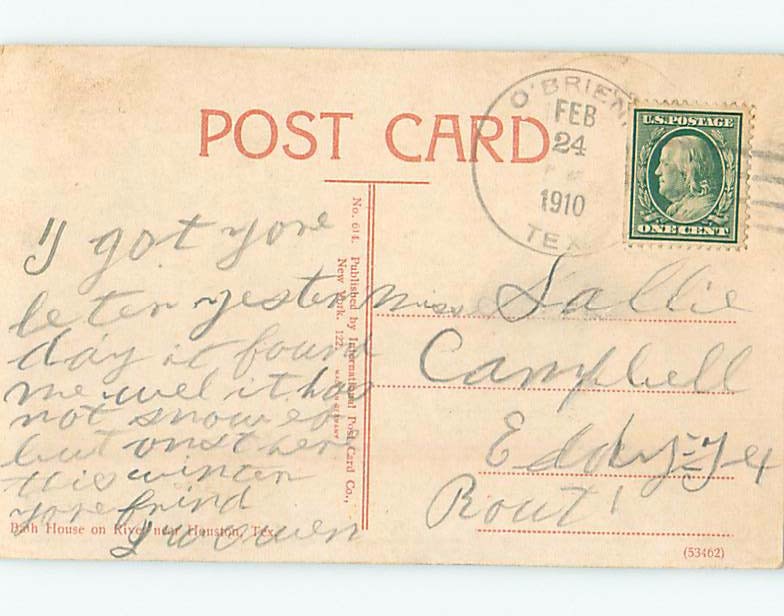 POST CARD
O'BRIEN
FEB
24
1910
TEX
U.S. POSTAGE
ONE CENT
I got yore
leten yester
day it found
me wel it has
not snowed
but onst here
this winter
yore frind
No. 614. Published by International Post Card Co.,
New York. 122.
Miss Sallie
Campbell
Eddy Tex
Rout 1
Bath House on River near Houston, Tex.
(53462)